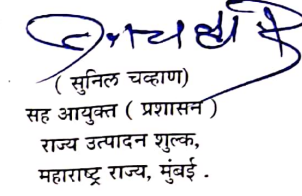 ( सुनिल चव्हाण)
सह आयुक्त ( प्रशासन )
राज्य उत्पादन शुल्क,
महाराष्ट्र राज्य, मुंबई .